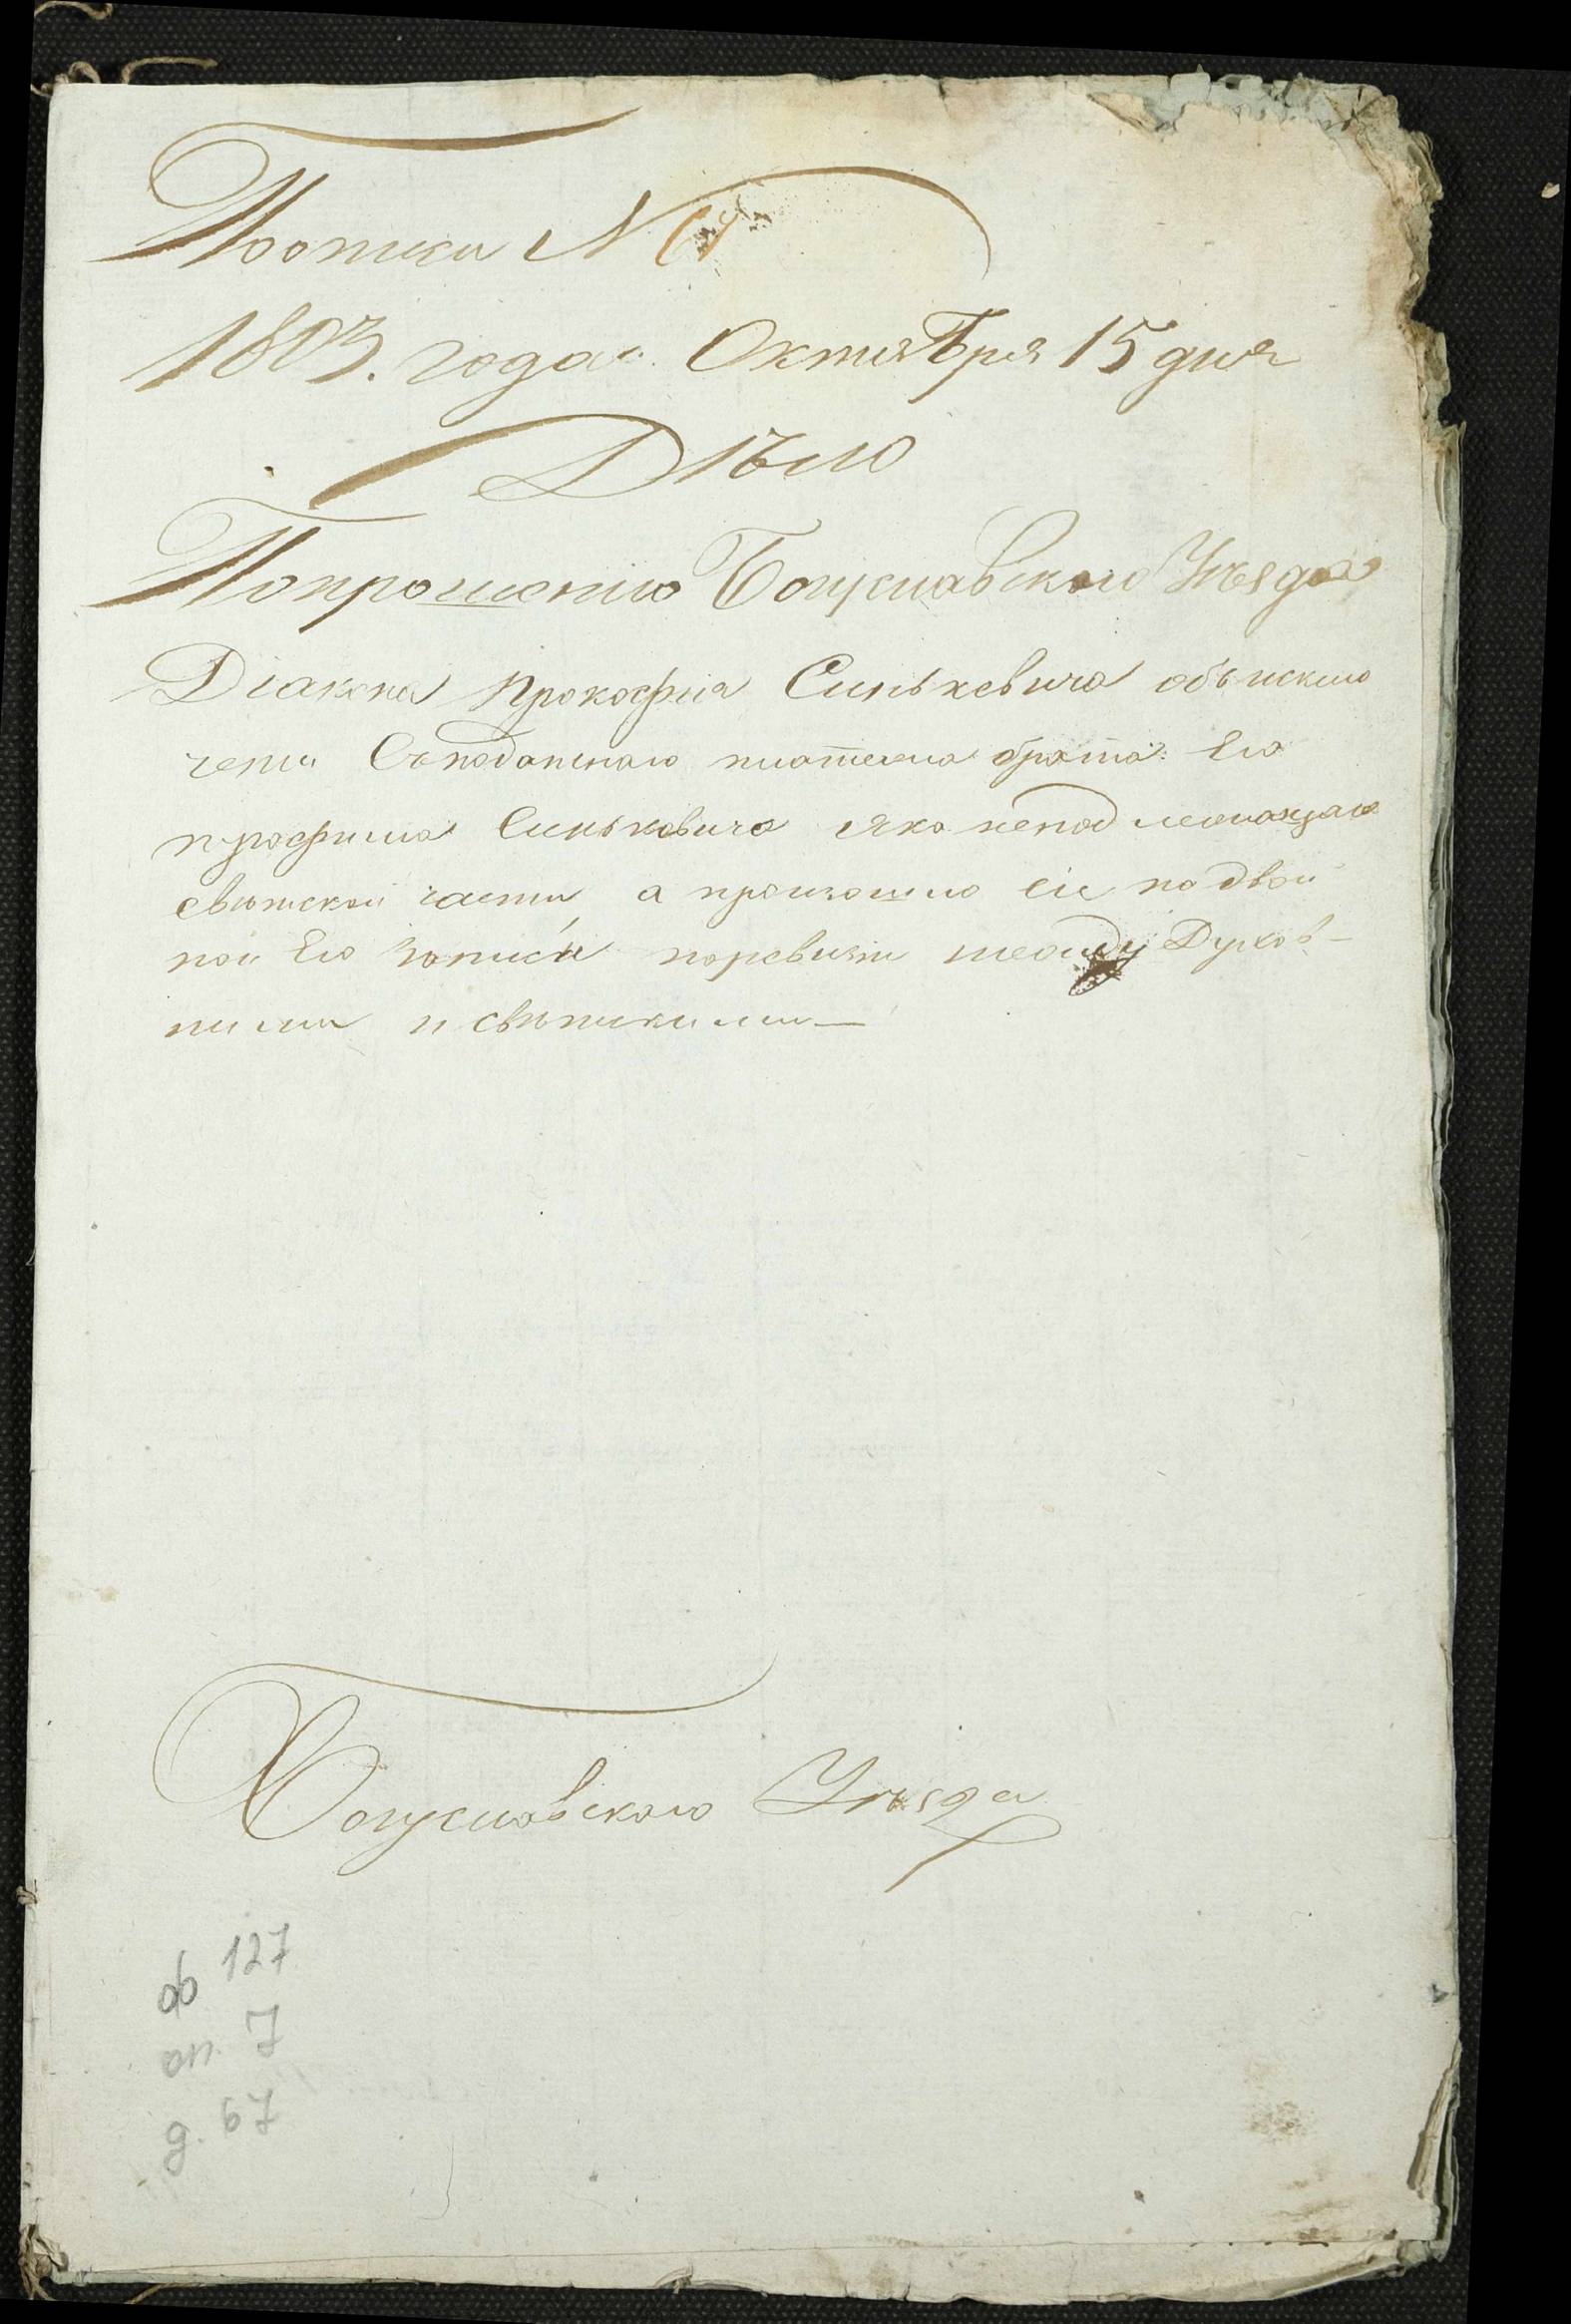 Поописи N 67
1803. года: Октября 15 дня
Дѣло
Попрошенію Богуславского Уѣзда
Діакона Прокофия Синькевича объисклю
чени Съподатнаго платежа брата Его
трофима Синькевича яко неподлежащаго
свѣтской части, а произошло сіе подвой
ной Его записи поревизи между Духов-
ними и свѣтскими—
Богуславского Уѣзда
ф 127
оп. 7
д. 67